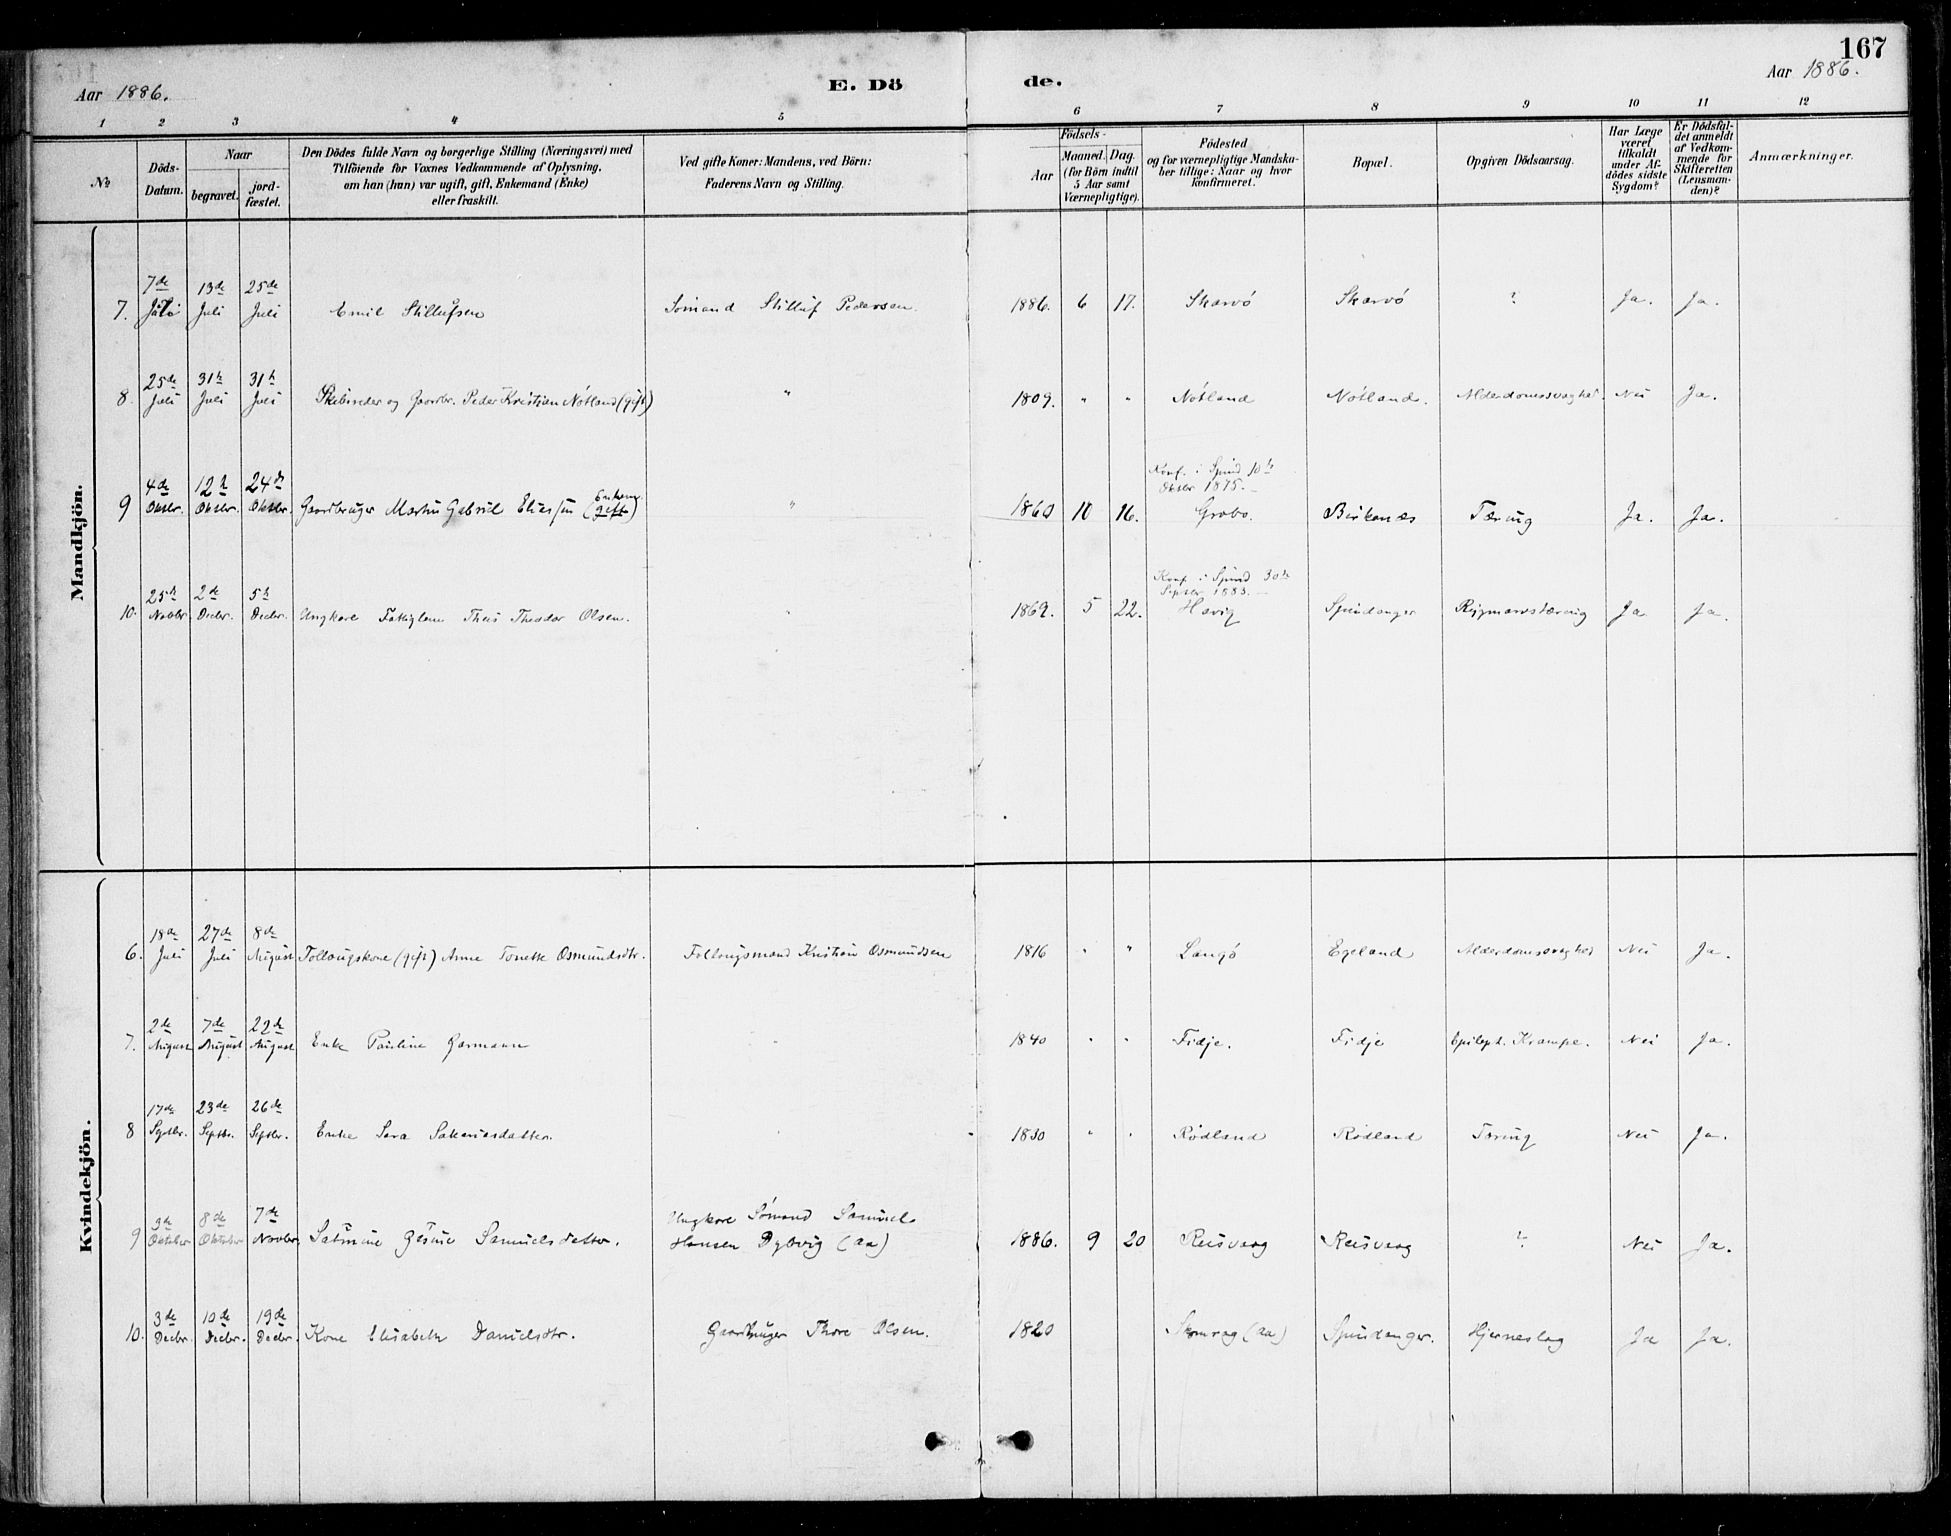 167
Aar 1886.
E. Dö
de.
Aar 1886.
1 2 3 4 5 6 7 8 9 10 11 12
No
Döds-Datum.
Naar
begravet.
jordfæstet.
Den Dödes fulde Navn og borgerlige Stilling (Næringsvei) med
Tilföiende for Voxnes Vedkommende af Oplysning,
om han (hun) var ugift, gift, Enkemand (Enke)
eller fraskilt.
Ved gifte Koner: Mandens, ved Börn:
Faderens Navn og Stilling.
Födsels-
Aar
Maaned. Dag.
(for Börn indtil
5 Aar samt
Værnepligtige).
Födested
og for værnepligtige Mandskaber tillige: Naar og hvor
konfirmeret.
Bopæl.
Opgiven Dödsaarsag.
Har Læge
været
tilkaldt
under Afdödes sidste
Sygdom?
Er Dödsfaldet anmeldt
af Vedkommende for
Skifteretten
(Lensmanden)?
Anmærkninger.
Mandkjön.
7. 7de Juli 13de Juli 25de Juli Emil Stillufsen Sømand Stilluf Pedersen. 1886. 6 17. Skarvö Skarvö ? Ja. Ja.
8. 25de Juli 31te Juli 31te Juli Skibsreder og Gaardbr. Peder Kristian Nötland (gift) " 1809. " " Nötland Nötland. Alderdomssvaghed. Nei Ja.
Konf. i Spind 10de
Oktbr 1875.
9 4de Oktbr. 12te Oktbr. 24de Oktbr. Gaardbruger Martin Gabriel Eliassen (Enkem. gift) " 1860 10 16. Grobo. Birkenæs Tæring Ja. Ja.
Konf. i Spind 30te
Septbr 1883.
10. 25de Novbr. 2de Decbr. 5te Decbr. Ungkarl Theis Theodor Olsen. " 1869. 5 22. Havig Spindanger Rygmarvstæring Ja Ja.
Kvindekjön.
6. 18de Juli 27de Juli 8de August Follaugskone (gift) Anne Tonette Osmundsdtr. Follaugsmand Kristian Osmundsen 1816 " " Langö Egeland Alderdomssvaghed Nei Ja.
7. 2de August 7de August 22de August Enke Pauline Gormann " 1840 " " Fidje. Fidje Epilept. Krampe. Nei Ja.
8 17de Septbr. 23de Septbr. 26de Septbr. Enke Sara Sakariasdatter. 1830 " " Rödland Rödland Tæring Nei Ja.
9 3de Oktober 8de Oktober 7de Novbr. Satmine Gesine Samuelsdatter. Ungkarl Sömand Samuel
Hansen Dybvig (aa) 1886. 9 20 Reisvaag Reisvaag ? Nei Ja.
10. 3de Decbr. 10de Decbr. 19de Decbr. Kone Elisabeth Danielsdtr. Gaardbruger Thore Olsen. 1820 (aa) Spindanger. Hjerneslag Ja Ja.